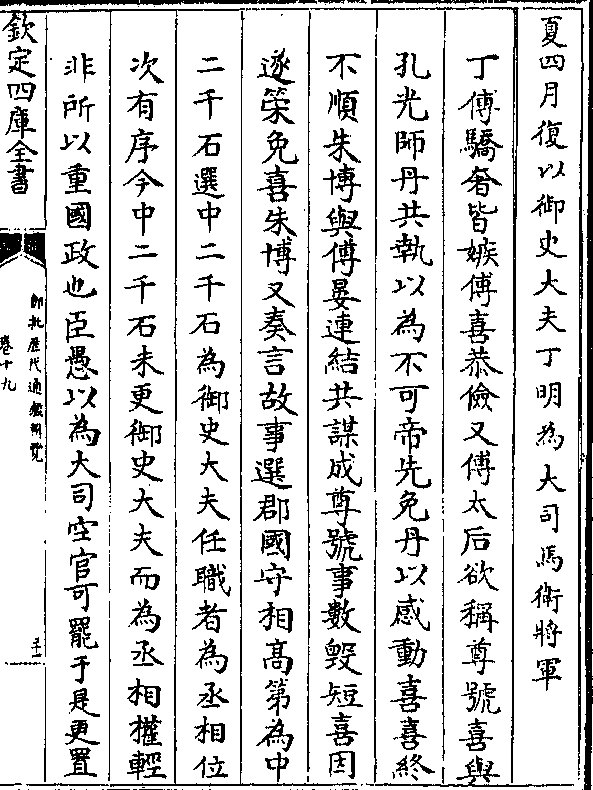 夏四月復以御史大夫丁明為大司馬衛將軍
丁傅驕奢皆嫉傅喜恭儉又傅太后欲稱尊號喜與
孔光師丹共執以為不可帝先免丹以感動喜喜終
不順朱博與傅晏連結共謀成尊號事數毀短喜因
遂策免喜朱博又奏言故事選郡國守相高第為中
二千石選中二千石為御史大夫任職者為丞相位
次有序今中二千石未更御史大夫而為丞相權輕
非所以重國政也臣愚以為大司空官可罷于是更置
欽定四庫全書
御批歷代通鑑輯覽
卷十九